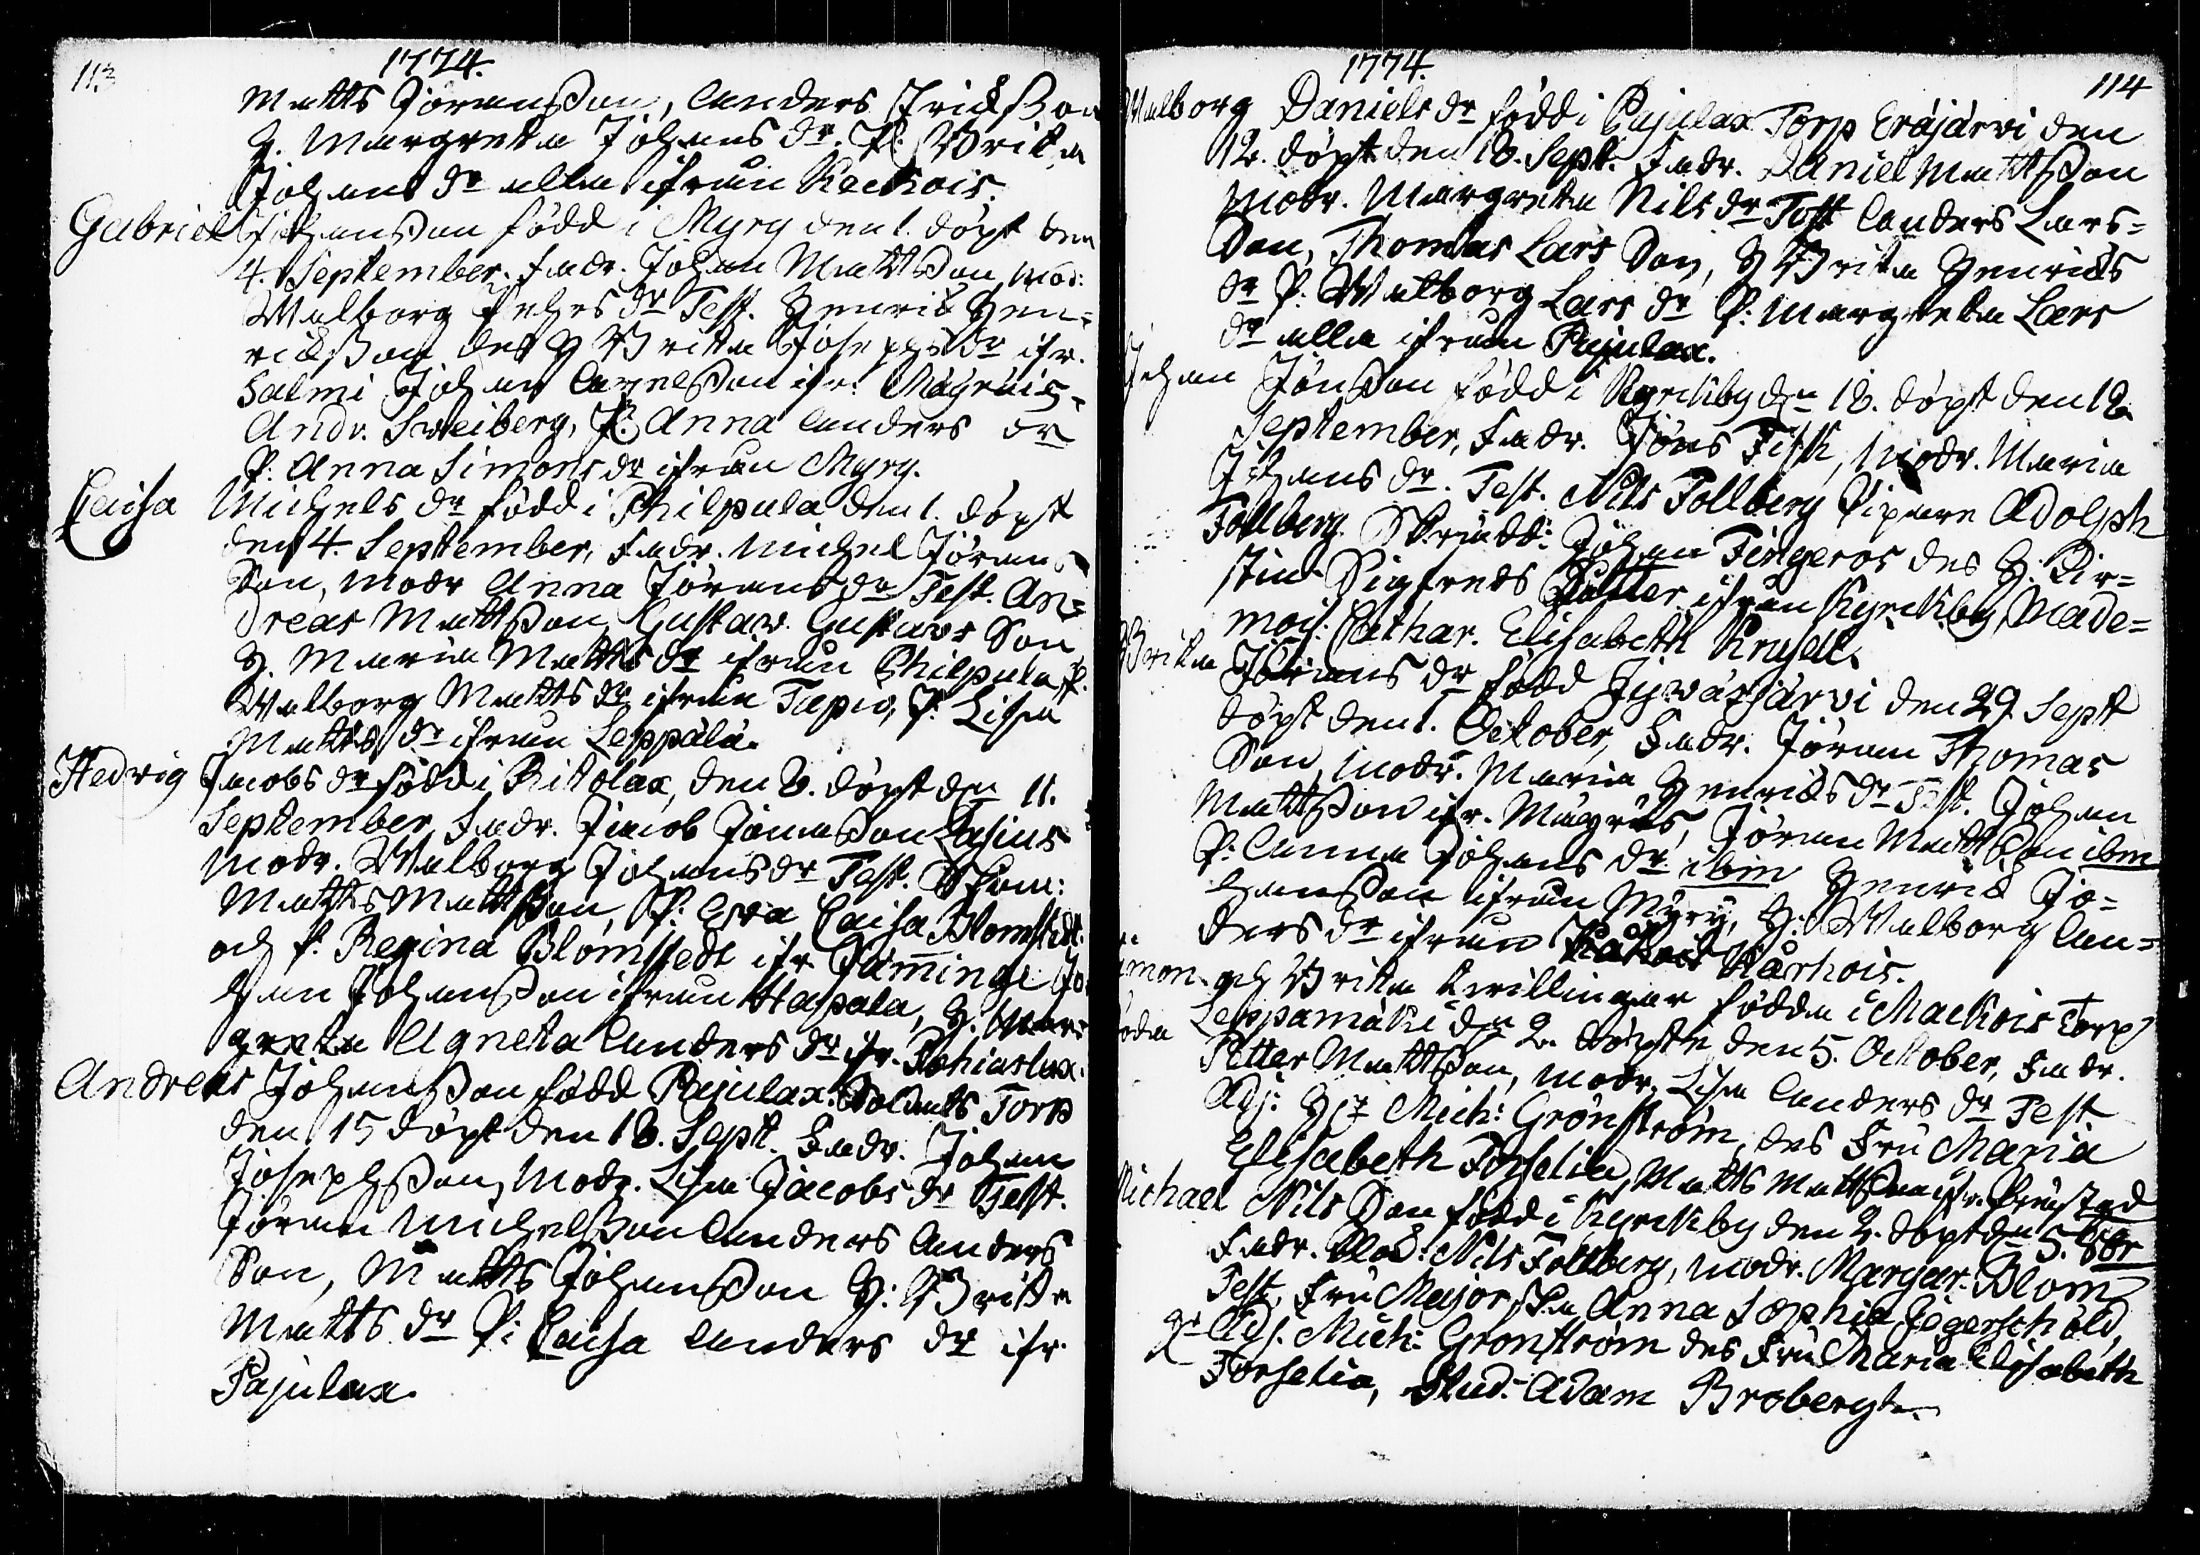 113
1774.
Matts Jöranßon, Anders Erickßon
H. Margreta Johans dr. P. Brita
Johans dr alla ifrån Kackois.
Gabriel Johansson född i Myry den 1. döpt den
4. September. Fadr. Johan Mattsson, Mod:
Walborg dr Test. Henric Hen=
ricßon des H Brita Josephs dr ifr.
Salmi Johan Axelsson ifr.
Andr. Sweiberg, P. Anna Anders dr
P. Anna Simons dr ifrån Myry.
Caisa Michels dr född i Philpula den 1. döpt
den 4. September, Fadr. Michel Jörans
Son, Modr Anna Jörans dr Test. An=
dreas Mattsson, Gustav Gustavs Son
H. Maria Matts dr ifrån Philpula, P.
Walborg Matts dr ifrån Tapio, P. Lisa
Matts dr ifrån Leppälä.
Hedvig Jacobs dr född i Ritolax, den 8. döpt den 11.
September, Fadr. Jacob Lasius
Modr. Walborg Johans dr Test.
Matts Mattsson, P: Eva Caisa Blomstedt
och P. Regina Blomstedt ifr Jo
han Johansson ifrån Hapala, H. Mar=
greta Agneta Anders dr ifr.
Andreas Johansson född Pajulax Soldats Torp
den 15 döpt den 18. Sept. Fadr. Johan
Josephsson, Modr. Lisa Jacobs dr Test.
Jöran Michelsson Anders Anders
Son, Matts Johansson H: Brita
Matts dr P: Caisa Anders dr ifr.
Pajulax.
1774.
114
Walborg Daniels dr född i Pajulax Torp Eräjärvi den
12. döpt den 18. Sept. Fadr. Daniel Mattsson
Modr. Margreta Nils dr Test Anders Lars=
Son, Thomas Lars Son, H Brita Henrics
dr P: Walborg Lars dr P: Margreta Lars
dr alla ifrån Pajulax.
Johan Jönsson född i Kyrckby den 18. döpt den 18
September, Fadr. Jöns Fisk, Modr. Maria
Johans dr. Test. Nils Follberg Pipare Adolph
Follberg Skrädd: Johan Fingeros des H. Kir=
stin Sigfreds Dotter ifrån Kyrckby, Made=
mois: Cathar. Elisabeth Krusell.
Brita Jörans dr född den 29 Sept
döpt den 1. October, Fadr. Jöran Thomas
Son, Modr. Maria Henrics dr Test. Johan
Mattsson ifr. Jöran Mattsson ibm
P: Anna Johans dr ibm Henric Jo=
hansson ifrån Myry, H: Walborg An=
ders dr ifrån Kårhois.
Simon och Brita twillingar födda i Mackois Torp
Leppamäki den 2. döpte den 5. October, Fadr.
Petter Mattsson, Modr. Lisa Anders dr Test
Adj: Hr Mich: Grönström, des Fru Maria
Elisabeth Forselia, Matts Mattsson ifr. Prustgd
Michael Nils Son född i Kyrckby den 2. döpt den 5. 8br
Fadr. Nils Follberg, Modr. Margar. Blom
Test. Fru Majorska Anna Sophia Jägerschöld,
Hr Adj. Mich: Grönström des Fru Maria Elisabeth
Forselia, Stud. Adam Brobergh.